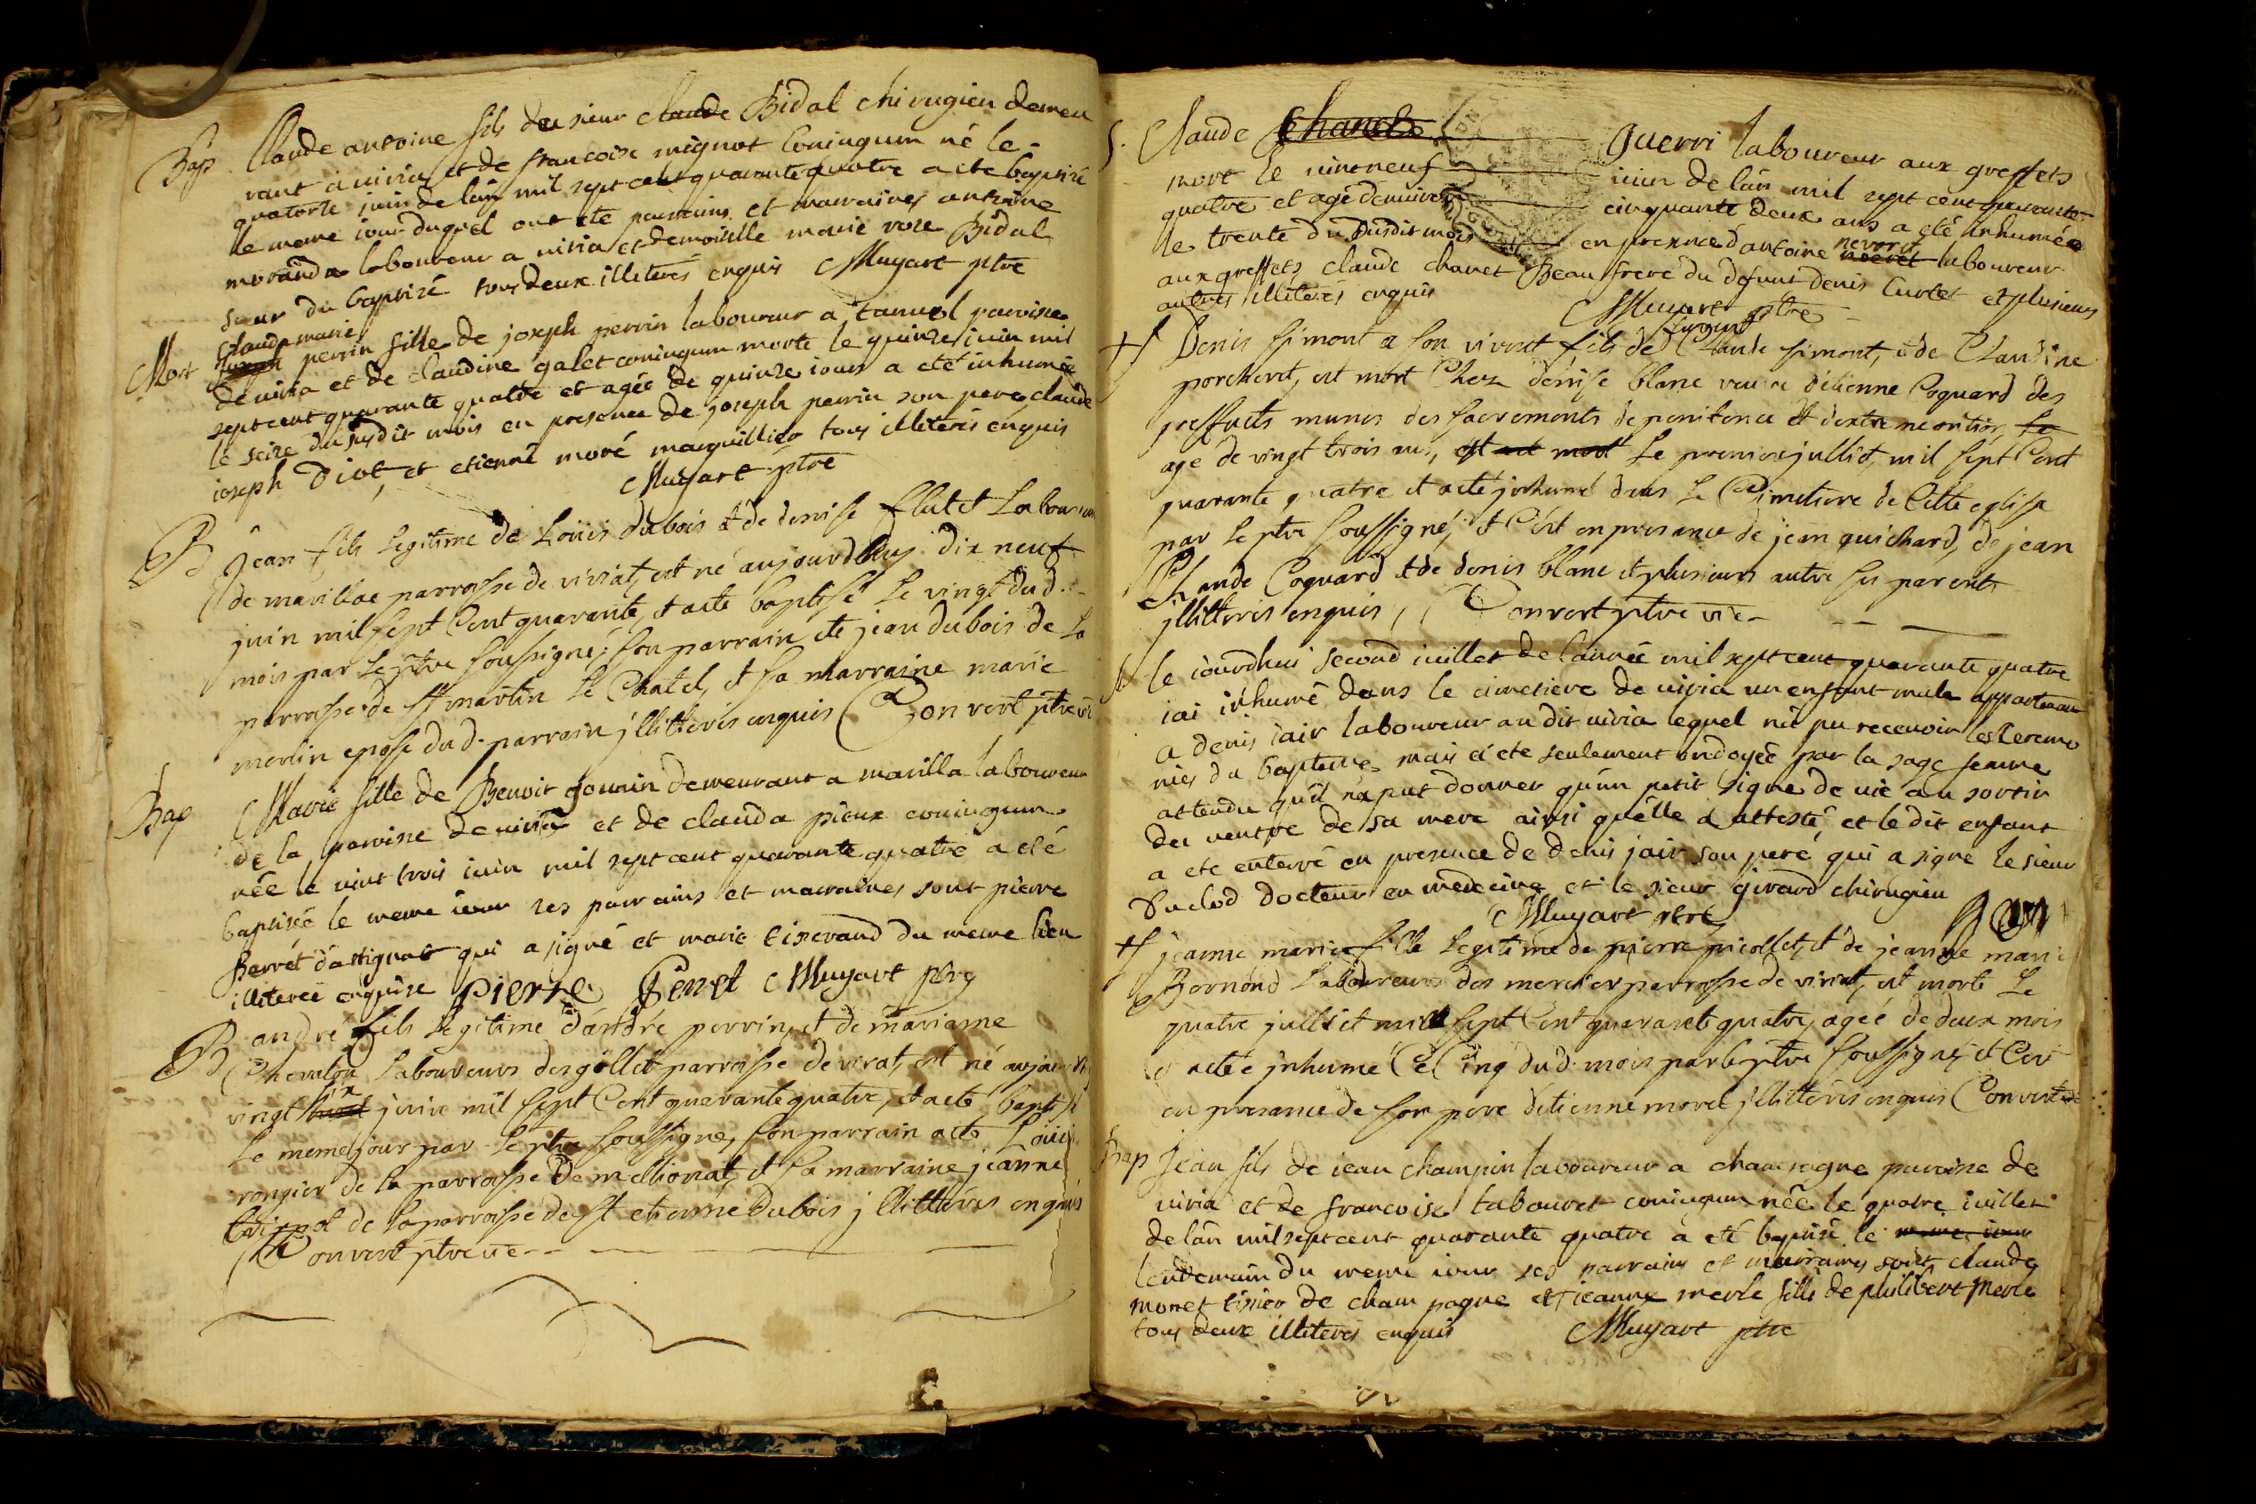 Bap Claude antoine fils du sieur claude Bidal chirugien demeu
rant a uiria et de francoise mignot coniugum né le
quatorse juin de lan mil sept cent quarante quatre a eté baptisé
le meme iour duquel ont eté parrains et marraines antoine
morand laboureur a uiria et demoiselle marie rose Bidal
sœur du baptisé tous deux illiterés enquis Muyart ptre
Mort Claude marie perrin fille de joseph perrin laboureur a tanuol paroisse
de uiria et de claudine galet coniugum morte le quinse iuin mil
sept cent quarante quatre et agée de quinse iours a eté inhumée
le seize du susdit mois en presence de joseph perrin son pere, claude
ioseph Diot, et etienne moré marguillier tous illiterés enquis
Muyart ptre
B Jean fils legitime de Loüis dubois et de denise flutet Laboureurs
de marillae parroisse de viriat, est né aujourdhuy dix neuf
juin mil sept Cent quarante, et aeté baptisé Le vingt dud.
mois par Le ptre soussigné; son parrain eté jean dubois de La
parroisse de st martin Le Chatel, et sa marraine marie
merlin epose dud. parrain jllitterés enquis Convert ptre vic
Bap Marie fille de Benoit gonnin demeurant a marilla laboureur
de la paroisse de uiria et de clauda pieux coniugum
née le uint trois iuin mil sept cent quarante quatre a eté
baptisée le meme iour ses parrains et marraines sont pierre
Perrét dattignat qui a signé et marie tiserand du meme lieu
illiterée enquise pierre Perret Muyart ptre
B andré fils legitime d'andré perrin, et de mariane
Chevalon Laboureurs des gollet parroisse de viriat, est né aujourdhuy
vingt six juin mil sept Cent quarante quatre, et aeté baptisé
Le meme jour par Le ptre soussigné, son parrain aeté Loüis
rongier de la parroisse de mellionat, et sa marraine jeanne
de la parroisse de st etienne Dubois jllitterés enquis
Convert ptre vic
S. Claude Chanel Guerri laboureur aux greffets
mort le uint neuf iuin de lan mil sept cent quarante
quatre et agé denuiron cinquante deux ans a eté inhumée
le trente du susdit mois en presence dantoine nevoret laboureur
aux greffets claude chanet Beau frere du defunt denis Curtet et plusieurs
autres illiterés enquis Muyart ptre
+ Denis simont a son vivant fils de Claude simont, et de Claudine
porcheret, est mort Chez denise blanc veuve d'etienne Coquard des
greffets munis des sacrements de penitence et dextremeontion
agé de vingt trois ans, Le premier julliet, mil sept Cent
quarante quatre et aeté jnhumé dans Le Cimetiere de Cette eglise
par Le ptre soussigné, et C'est en presance de jean guichard, de jean
Claude Coquard et de denis blanc et plusieurs autre ses parents
jllitterés enquis, Convert ptre vic
le iourdhui second iuillet de lannée mil sept cent quarante quatre
iai inhumé dans le cimetiere de uiria un enfant male appartenant
a denis iair laboureur au dit uiria lequel na pu recevoir les Ceremo
nies du baptême, mais a eté seulement ondoyée par la sage femme
attendu qu'il na put donner qu'un petit signe de uie au sortir
du ventre de sa mere ainsi qu'elle a attesté, et le dit enfant
a eté enterré en presence de denis jair son peré qui a signé le sieur
Duclod docteur en medecine et le sieur girard chirugien
Muyart ptre
+ jeanne marie fille legitime de pierre picollet, et de jeanne marie
Bornond Laboureurs des mercier parroisse de viriat, est morte Le
quatre julliet mil sept Cent quarante quatre, agée de deux mois
et aeté jnhumé Le Cinq dud. mois par Le ptre soussigné, et Cec
en presance de son pere d'etienne morel jllitterés enquis Convert
Bap Jean fils de iean champin laboureur a champagne paroisse de
uiria et de francoise tabouret coniugum née le quatre iuillet
de lan mil sept cent quarante quatre a eté baptisé le meme iour
lendemain du meme iour ses parrains et marraines sont, claude
monet tisier de champagne et jeanne merle fille de philibert Merle
tous deux illiterés enquis Muyart ptre